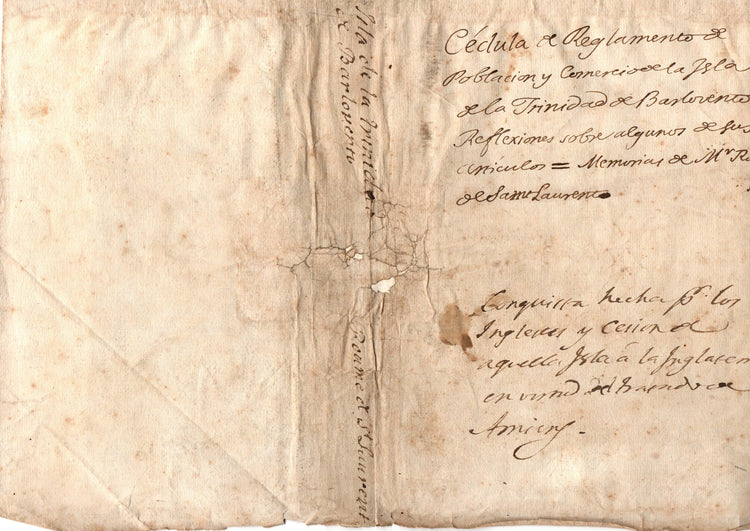 Isla de la Trinidad
de Barlovento
Roume de St Laurent
Cédula de Reglamento de
Poblacion y Comercio de la Isla
de la Trinidad de Barlovento
Reflexiones sobre algunos de sus
articulos = Memorias de Mr. Ro
de Saint Laurent
Conquista hecha pr. los
Ingleses y Cesion de
aquella Isla á la Inglater
en virtud del tratado de
Amiens.